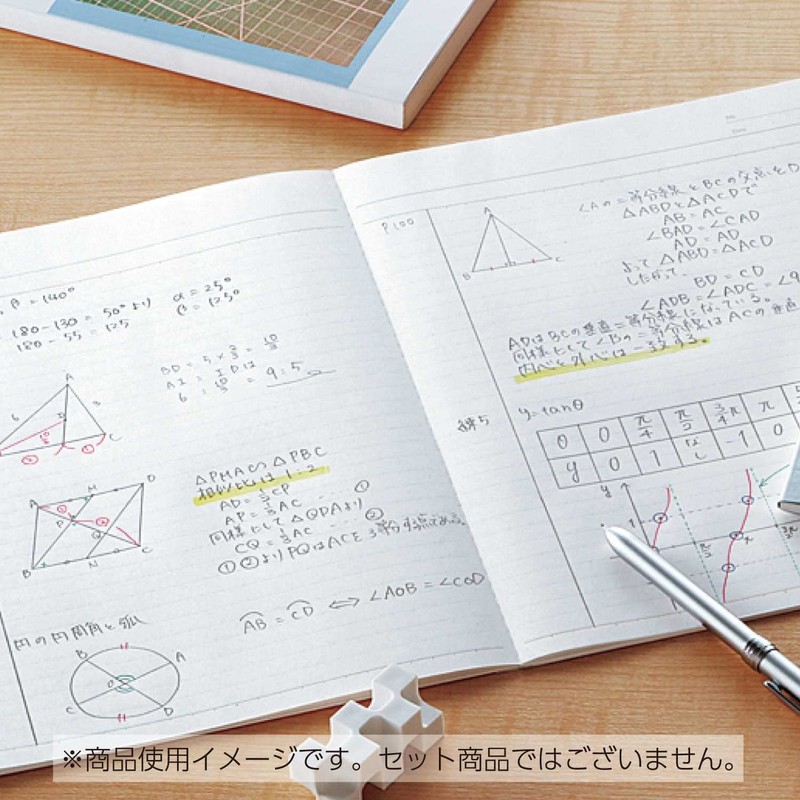 β = 140°
180 - 130 = 50° より
180 - 55 = 125
α = 25°
β = 125°
BD = 5 ×
AI : ID は
= 9 : 5
A
6
B
C
② ①
△PMA ∽ △PBC
相似比は 1 : 2
AD = CP
AP = 1/3 AC ①
同様にして △QDA より
CQ = 1/3 AC ②
①②より PQはACを3等分する点である。
A M D
P
Q
B N C
円の円周角と弧
AB = CD ⇔ ∠AOB = ∠COD
B A
O
C D
No.
Date
P.100
A
B C
∠Aの二等分線とBCの交点をD
△ABDと△ACDで
AB = AC
∠BAD = ∠CAD
AD = AD
よって △ABD = △ACD
したがって、
BD = CD
∠ADB = ∠ADC = ∠9
ADはBCの垂直二等分線になっている。
同様にして∠Bの二等分線はACの垂直
内心と外心は一致する。
練5
y = tanθ
θ 0 π/4 π/2 3/4π π
y 0 1 なし -1 0
y
1
π/2
π
※商品使用イメージです。セット商品ではございません。